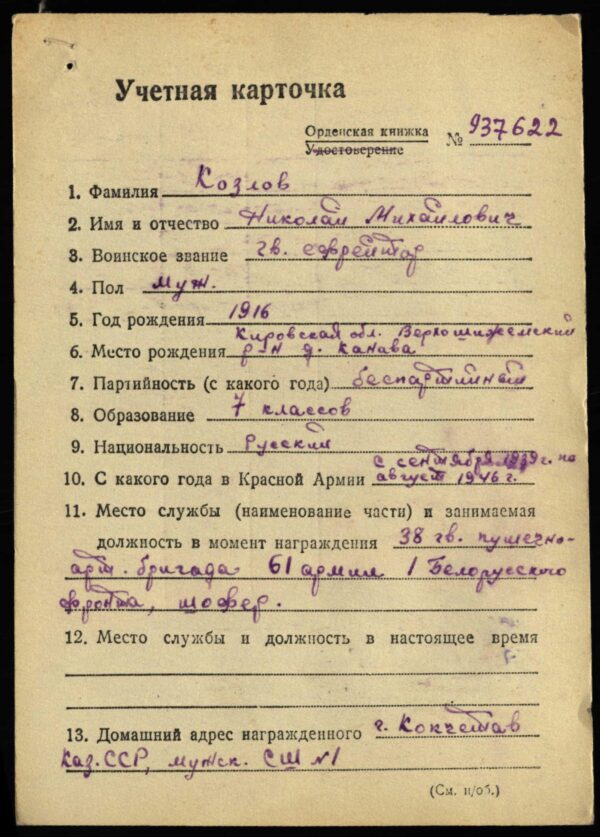 Учетная карточка
Орденская книжка
Удостоверение № 937622
1. Фамилия Козлов
2. Имя и отчество Николай Михайлович
3. Воинское звание гв. ефрейтор
4. Пол муж.
5. Год рождения 1916
Кировская обл. Верхошижемский
6. Место рождения р-н д. Канава
7. Партийность (с какого года) беспартийный
8. Образование 7 классов
9. Национальность Русский
с сентября 1939 г. по
10. С какого года в Красной Армии август 1946 г.
11. Место службы (наименование части) и занимаемая
должность в момент награждения 38 гв. пушечно-
арт. бригада 61 армии 1 Белорусского
фронта, шофер.
12. Место службы и должность в настоящее время
13. Домашний адрес награжденного г. Кокчетав
Каз. ССР, мужск. СШ №1
(См. н/об.)